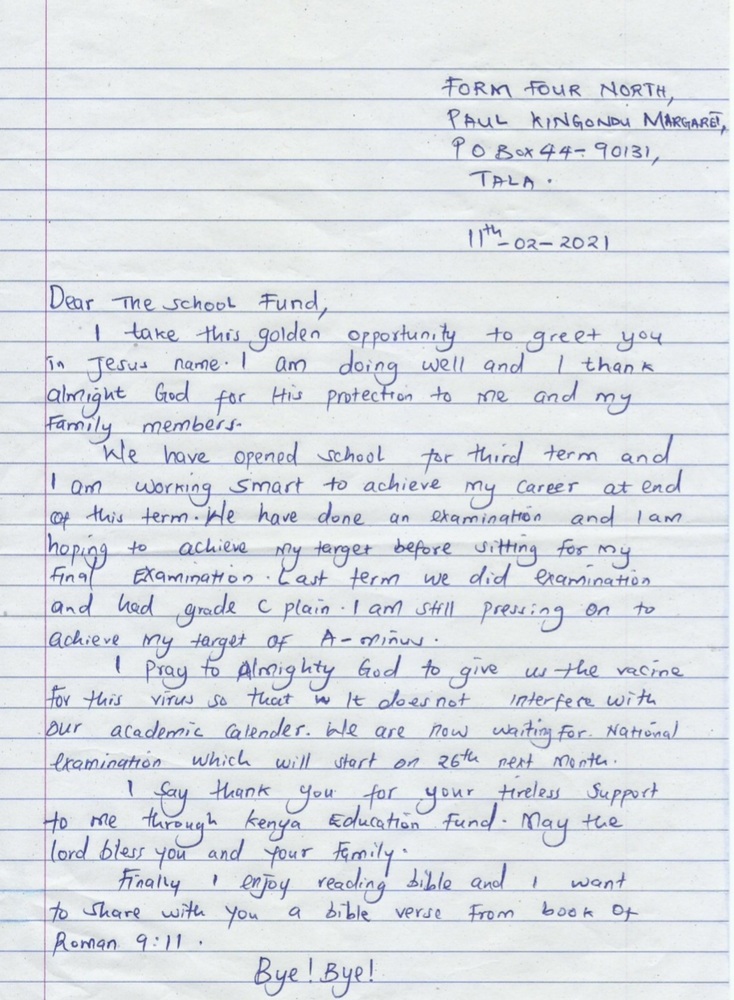 FORM FOUR NORTH,
PAUL KINGONDU MARGARET,
P O Box 44-90131,
TALA.
11th-02-2021
Dear The school Fund,
I take this golden opportunity to greet you
in Jesus name. I am doing well and I thank
almight God for His protection to me and my
family members.
We have opened school for third term and
I am working smart to achieve my career at end
of this term. We have done an examination and I am
hoping to achieve my target before sitting for my
final Examination. Last term we did examination
and had grade C plain. I am still pressing on to
achieve my target of A-minus.
I pray to Almighty God to give us the vacine
for this virus so that It does not interfere with
our academic calender. We are now waiting for National
examination which will start on 26th next month.
I say thank you for your tireless support
to me through Kenya Education Fund. May the
lord bless you and your family.
Finally I enjoy reading bible and I want
to share with you a bible verse from book of
Roman 9:11.
Bye! Bye!